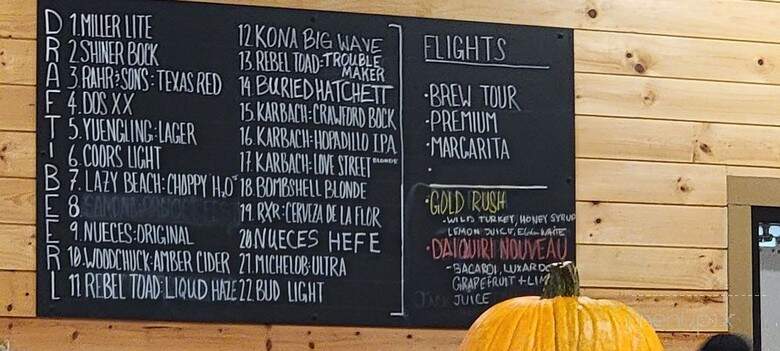 DRAFT BEER
1. MILLER LITE
2. SHINER BOCK
3. RAHR+SONS: TEXAS RED
4. DOS XX
5. YUENGLING: LAGER
6. COORS LIGHT
7. LAZY BEACH: CHOPPY H2O
8.
9. NUECES: ORIGINAL
10. WOODCHUCK: AMBER CIDER
11. REBEL TOAD: LIQUD HAZE
12. KONA BIG WAVE
13. REBEL TOAD: TROUBLE
MAKER
14. BURIED HATCHETT
15. KARBACH: CRAWFORD BOCK
16. KARBACH: HOPADILLO IPA
17. KARBACH: LOVE STREET BLONDE
18. BOMBSHELL BLONDE
19. RXR: CERVEZA DE LA FLOR
20 NUECES HEFE
21. MICHELOB: ULTRA
22 BUD LIGHT
FLIGHTS
· BREW TOUR
· PREMIUM
· MARGARITA
·
· GOLD RUSH
· WILD TURKEY, HONEY SYRUP
LEMON JUICE, EGG WHITE
· DAIQUIRI NOUVEAU
- BACARDI, LUXARDO
GRAPEFRUIT + LIM
JUICE